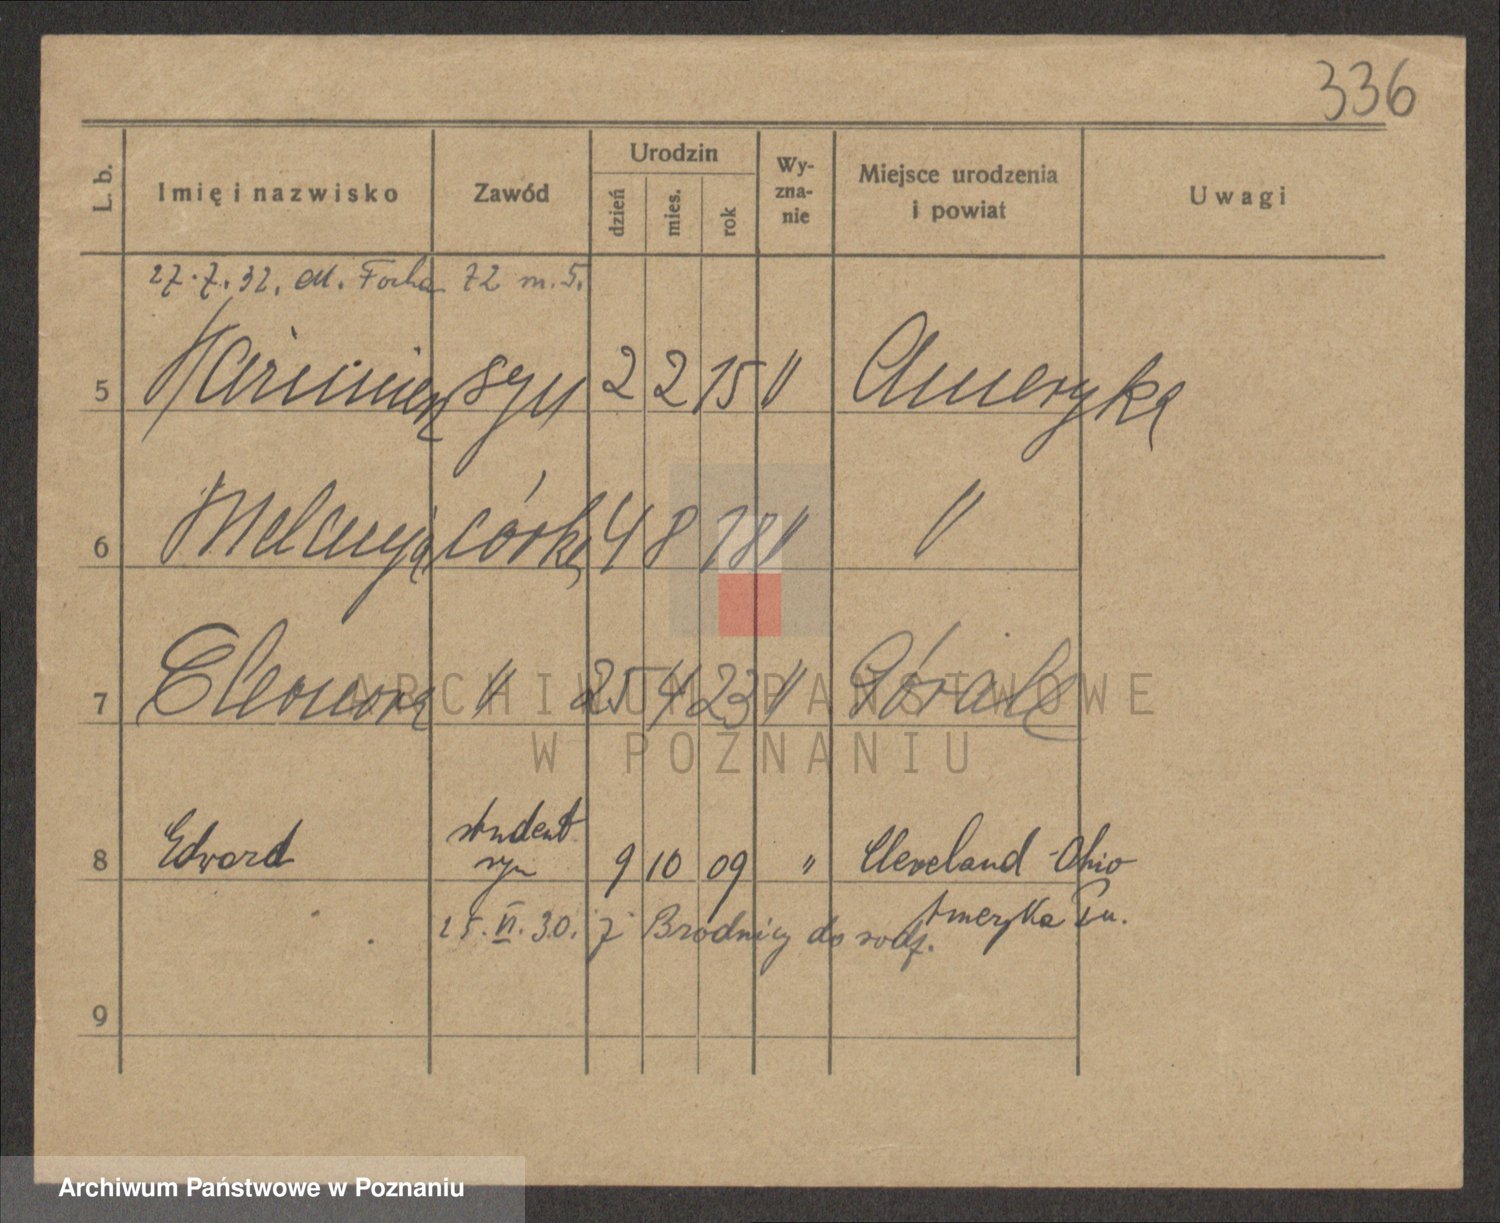 336
L. b. Imię i nazwisko Zawód Urodzin dzień mies. rok Wy-zna-nie Miejsce urodzenia i powiat Uwagi
27.7.32. M. Focha 72 m. 5.
5 Kazimierz syn 2 2 15 " Ameryka
6 Melanja córka 4 8 18 " "
7 Eleonora " 25 4 23 " Górale
8 Edward student syn 9 10 09 " Cleveland-Ohio
Ameryka Pn.
25.VI.30. z Brodnicy do rodz.
9
ARCHIWUM PAŃSTWOWE
W POZNANIU
Archiwum Państwowe w Poznaniu